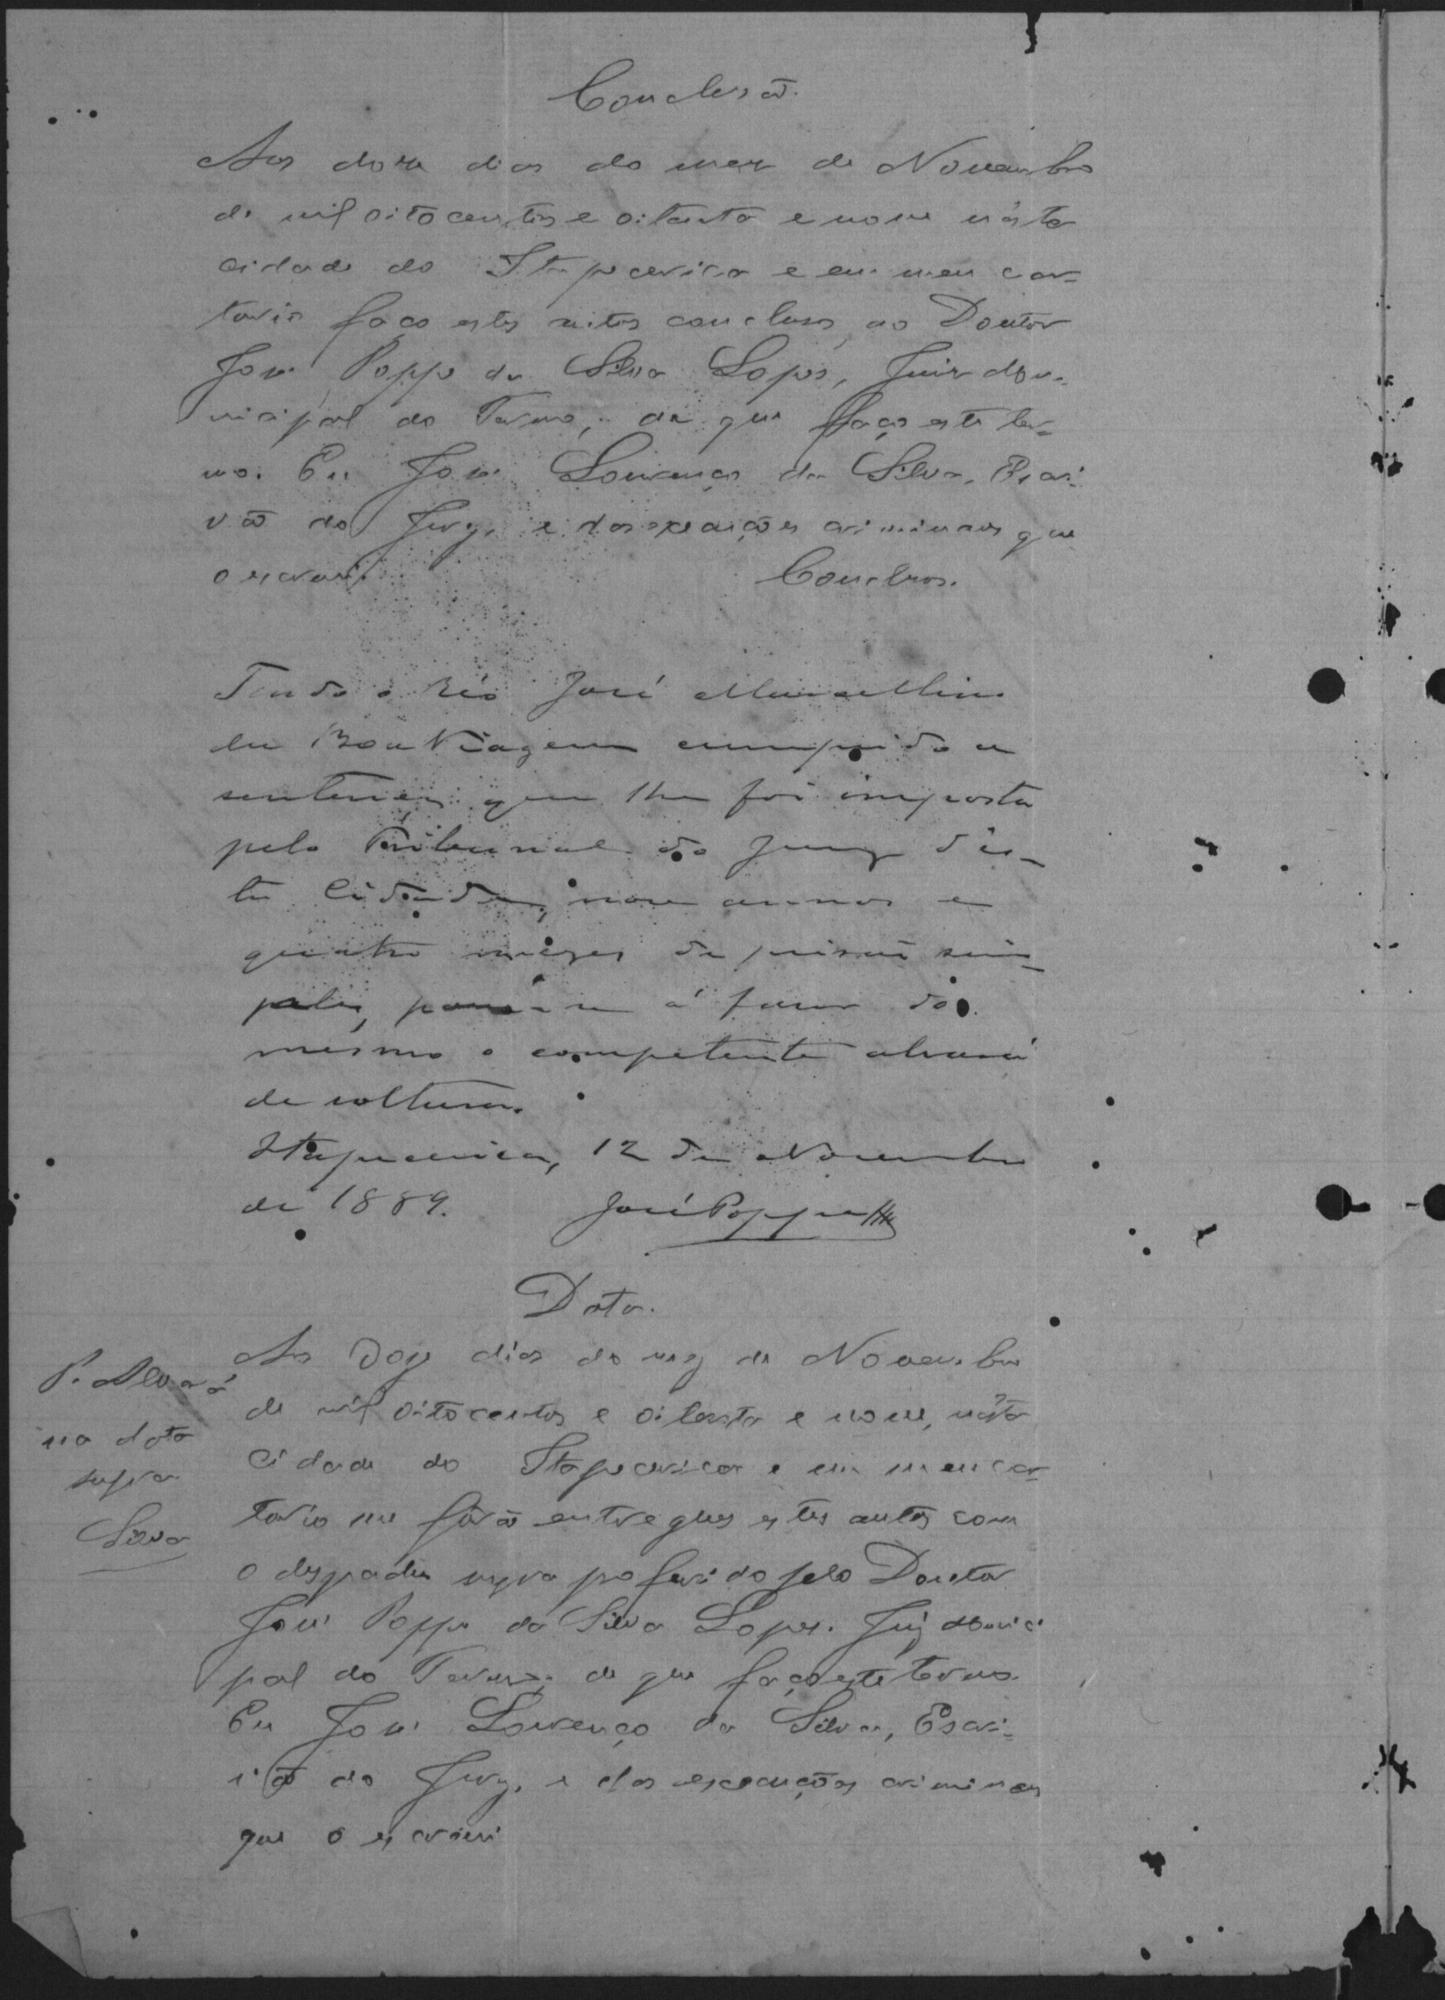 Conclusão.
Aos doze dias do mez de Novembro
de mil oitocentos e oitenta e nove nésta
cidade do Itapecerica e em meu car-
torio faço estes autos conclusos ao Doutor
José Poppe da Silva Lopes, Juiz Mu-
nicipal do Termo, de que faço este ter-
mo. Eu José Lourenço da Silva, Escri-
vão do Jury, e das execuções criminaes que
o escrevi.
Conclusos.
Tendo o réo José Marcellino
da Boa Viagem cumprido a
sentença que lhe foi imposta
pelo Tribunal do Jury d'es-
ta Cidade, nove annos e
quatro mezes de prisão sim-
ples, passe-se á favor do
mesmo o competente alvará
de soltura.
Itapecerica, 12 de Novembro
de 1889. José Poppe
Data.
Aos doze dias do mez de Novembro
de mil oitocentos e oitenta e nove, nésta
cidade do Itapecerica e em meu car-
torio me fôrão entregues estes autos com
o despacho supra proferido pelo Doutor
José Poppe da Silva Lopes. Juiz Munici
pal do Termo; de que faço este termo.
Eu José Lourenço da Silva, Escri-
vão do Jury, e das execuções criminaes
que o escrevi
P. Alvará
na data
supra
Silva